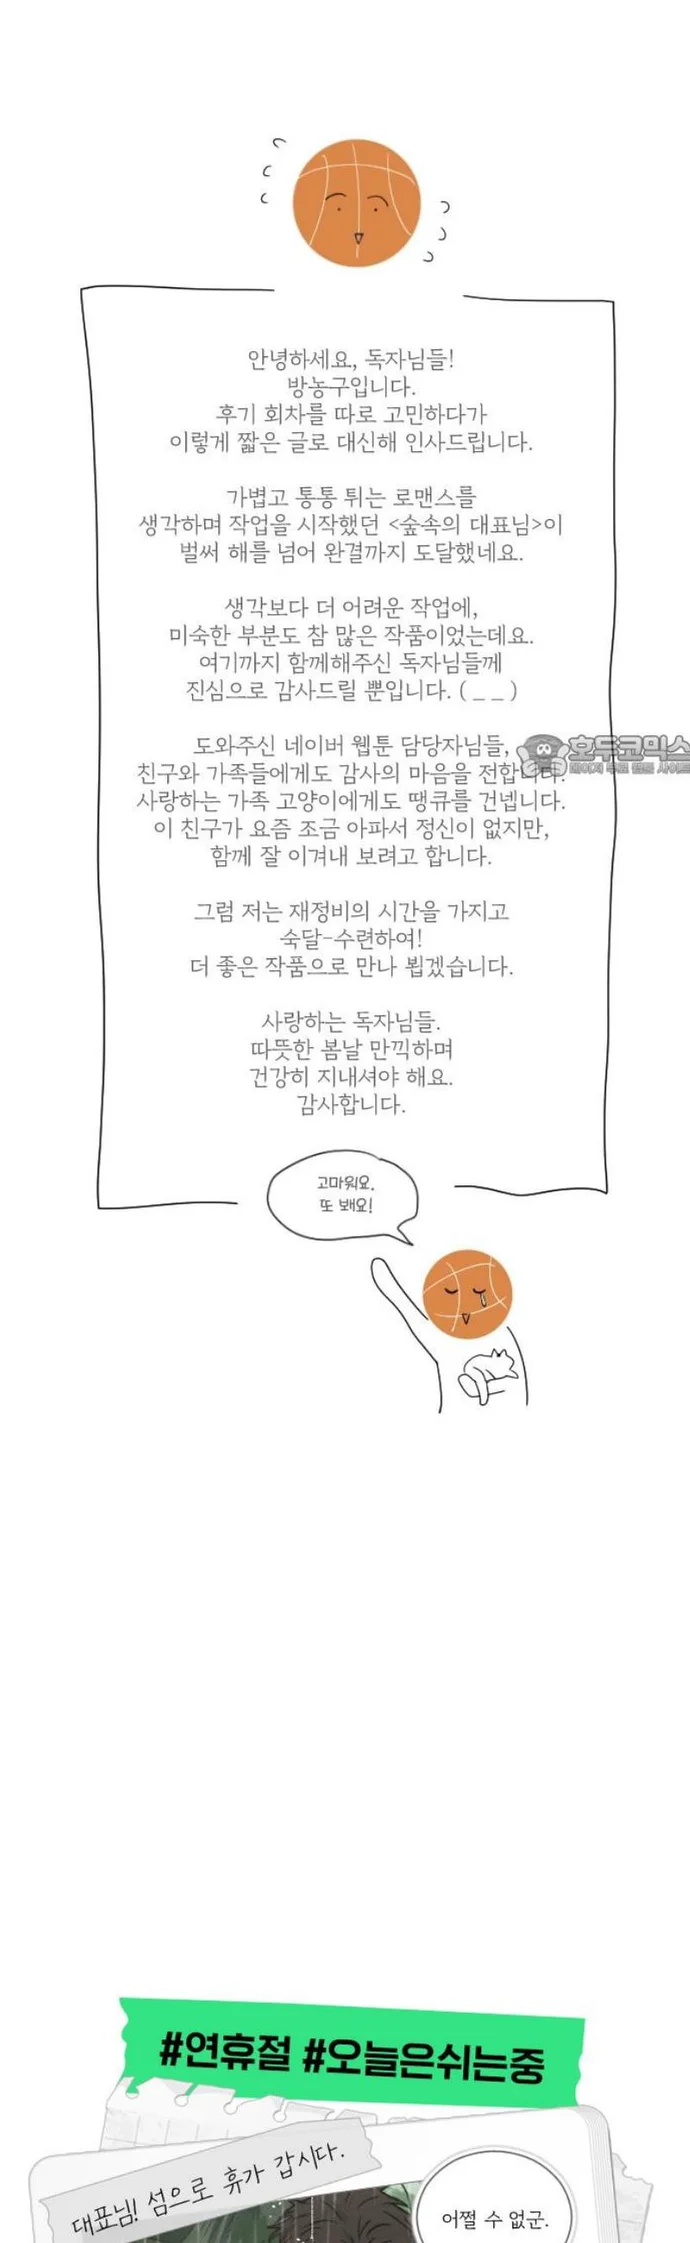 안녕하세요, 독자님들!
방농구입니다.
후기 회차를 따로 고민하다가
이렇게 짧은 글로 대신해 인사드립니다.
가볍고 통통 튀는 로맨스를
생각하며 작업을 시작했던 <숲속의 대표님>이
벌써 해를 넘어 완결까지 도달했네요.
생각보다 더 어려운 작업에,
미숙한 부분도 참 많은 작품이었는데요.
여기까지 함께해주신 독자님들께
진심으로 감사드릴 뿐입니다. ( _ _ )
도와주신 네이버 웹툰 담당자님들,
호두코믹스
친구와 가족들에게도 감사의 마음을 전합니다.
사랑하는 가족 고양이에게도 땡큐를 건넵니다.
이 친구가 요즘 조금 아파서 정신이 없지만,
함께 잘 이겨내 보려고 합니다.
그럼 저는 재정비의 시간을 가지고
숙달-수련하여!
더 좋은 작품으로 만나 뵙겠습니다.
사랑하는 독자님들.
따뜻한 봄날 만끽하며
건강히 지내셔야 해요.
감사합니다.
고마워요.
또 봬요!
#연휴절 #오늘은쉬는중
대표님! 섬으로 휴가 갑시다.
어쩔 수 없군.